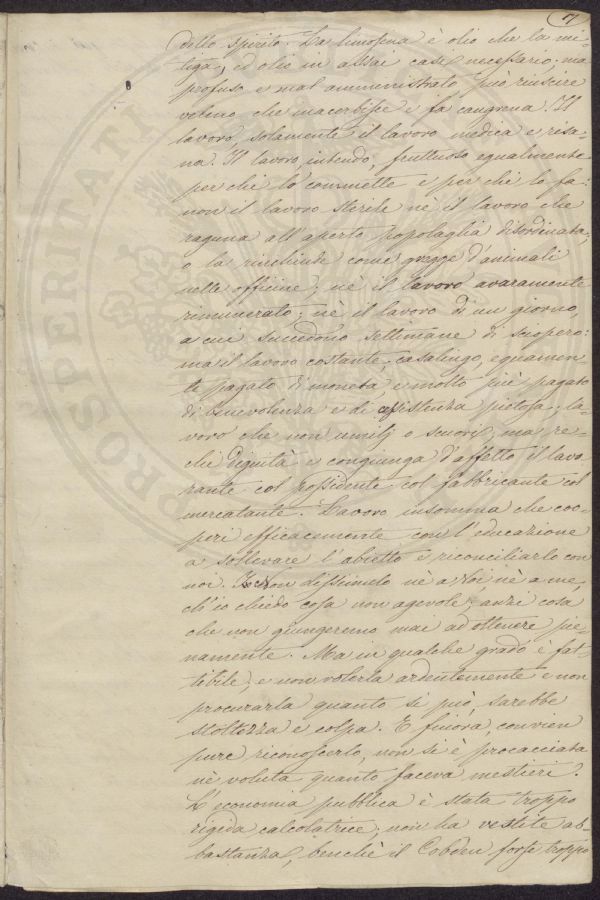 7
dello spirito. La limosina è olio che la mi-
tiga, ed olio in assai casi necessario; ma
profuso e mal amministrato può riuscire
veleno che inacerbisce e fa cangrena. Il
lavoro, solamente il lavoro medica e risa-
na. Il lavoro, intendo, fruttuoso egualmente
per chi lo commette e per chi lo fa:
non il lavoro sterile nè il lavoro che
raguna all'aperto popolaglia disordinata,
o la rinchiude come gregge d'animali
nelle officine; nè il lavoro avaramente
rimunerato; nè il lavoro di un giorno,
a cui succedono settimane di sciopero:
ma il lavoro costante, casalingo, equamen-
te pagato di moneta, e molto più pagato
di benevolenza e di assistenza pietosa; la-
voro che non umilj o scuori, ma re-
chi dignità e congiunga d'affetto il lavo-
rante col possidente col fabbricante col
mercatante. Lavoro insomma che coo-
peri efficacemente con l'educazione
a sollevare l'abietto e riconciliarlo con
noi. Non dissimulo nè a Voi nè a me,
ch'io chiedo cosa non agevole, anzi cosa
che non giungeremo mai ad ottenere pie-
namente. Ma in qualche grado è fat-
tibile, e non volerla ardentemente e non
procurarla quanto si può, sarebbe
stoltezza e colpa. E finora, convien
pure riconoscerlo, non si è procacciata
nè voluta quanto faceva mestieri.
L'economia pubblica è stata troppo
rigida calcolatrice, non ha vestite ab-
bastanza, benchè il Cobden forse troppo
PROSPERITATI